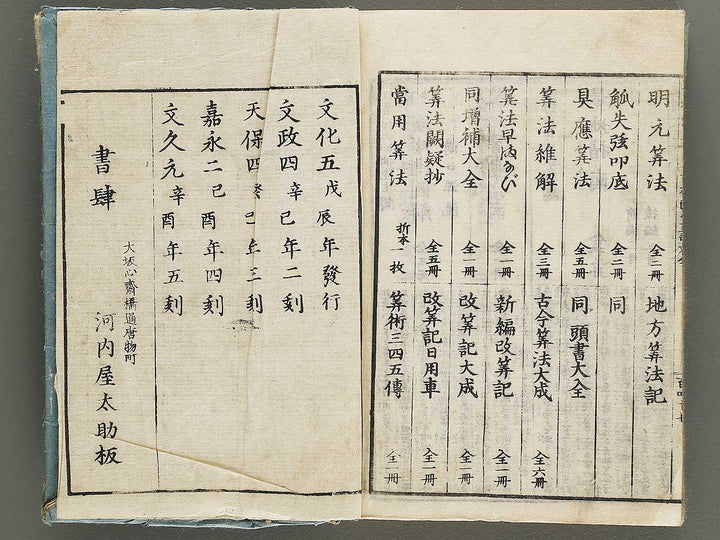 明元筭法 全二冊 地方筭法記
觚失弦叩底 全二冊 同
具應筭法 全五冊 同頭書大全
筭法維解 全三冊 古今筭法大成 全六冊
筭法早まなび 全一冊 新編改筭記 全一冊
同增補大全 全二冊 改筭記大成 全一冊
筭法闕疑抄 全五冊 改筭記日用車 全一冊
當用筭法 折本一枚 筭術三四五傳 全一冊
文化五戊辰年發行
文政四辛巳年二刻
天保四癸巳年三刻
嘉永二己酉年四刻
文久元辛酉年五刻
大坂心齋橋通唐物町
書肆 河内屋太助板